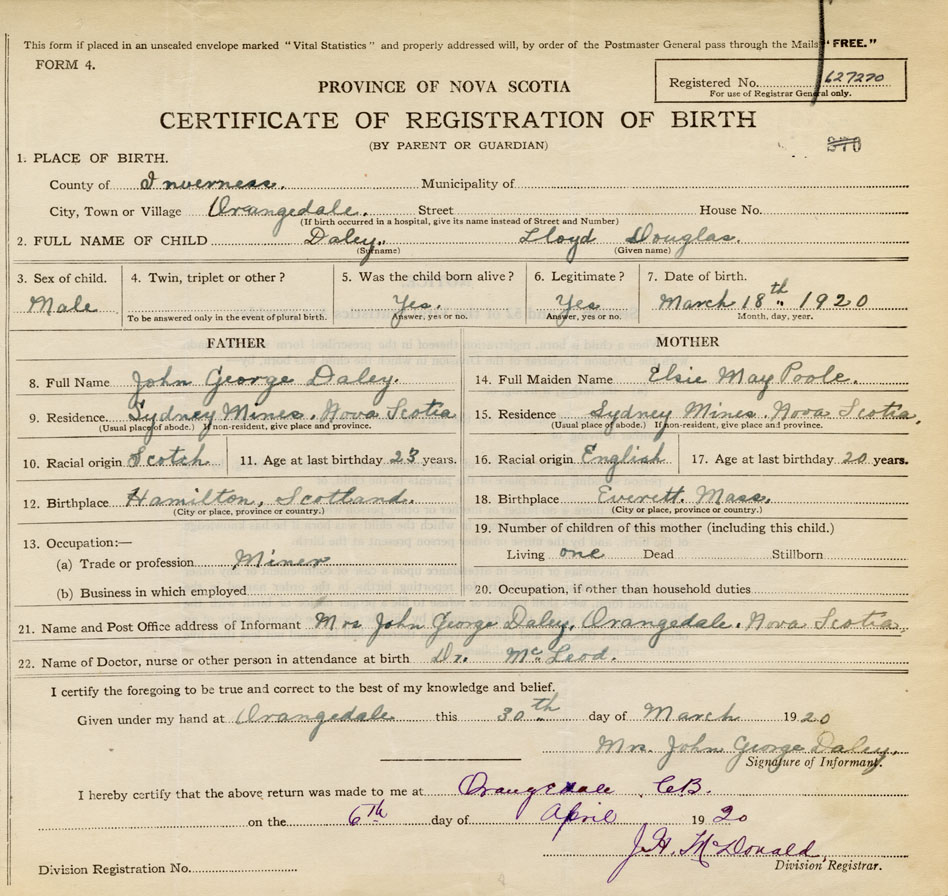 This form if placed in an unsealed envelope marked "Vital Statistics" and properly addressed will, by order of the Postmaster General pass through the Mails "FREE."
FORM 4.
Registered No. 627270
For use of Registrar General only.
PROVINCE OF NOVA SCOTIA
CERTIFICATE OF REGISTRATION OF BIRTH
(BY PARENT OR GUARDIAN)
370
1. PLACE OF BIRTH.
County of Inverness. Municipality of
City, Town or Village Orangedale. Street House No.
(If birth occurred in a hospital, give its name instead of Street and Number)
2. FULL NAME OF CHILD Daley. Lloyd Douglas.
(Surname) (Given name)
3. Sex of child. 4. Twin, triplet or other? 5. Was the child born alive? 6. Legitimate? 7. Date of birth.
Male Yes. Yes March 18th 1920
To be answered only in the event of plural birth. Answer, yes or no. Answer, yes or no. Month, day, year.
FATHER MOTHER
8. Full Name John George Daley. 14. Full Maiden Name Elsie May Poole.
9. Residence Sydney Mines. Nova Scotia 15. Residence Sydney Mines. Nova Scotia,
(Usual place of abode.) If non-resident, give place and province. (Usual place of abode.) If non-resident, give place and province.
10. Racial origin Scotch 11. Age at last birthday 23 years. 16. Racial origin English 17. Age at last birthday 20 years.
12. Birthplace Hamilton, Scotland. 18. Birthplace Everett. Mass.
(City or place, province or country.) (City or place, province or country.)
13. Occupation:— 19. Number of children of this mother (including this child.)
(a) Trade or profession Miner Living one Dead Stillborn
(b) Business in which employed 20. Occupation, if other than household duties
21. Name and Post Office address of Informant Mrs John George Daley, Orangedale. Nova Scotia.
22. Name of Doctor, nurse or other person in attendance at birth Dr. McLeod.
I certify the foregoing to be true and correct to the best of my knowledge and belief.
Given under my hand at Orangedale this 30th day of March 1920
Mrs. John George Daley.
Signature of Informant.
I hereby certify that the above return was made to me at Orangedale C.B.
on the 6th day of April 1920
J. H. McDonald,
Division Registration No. Division Registrar.